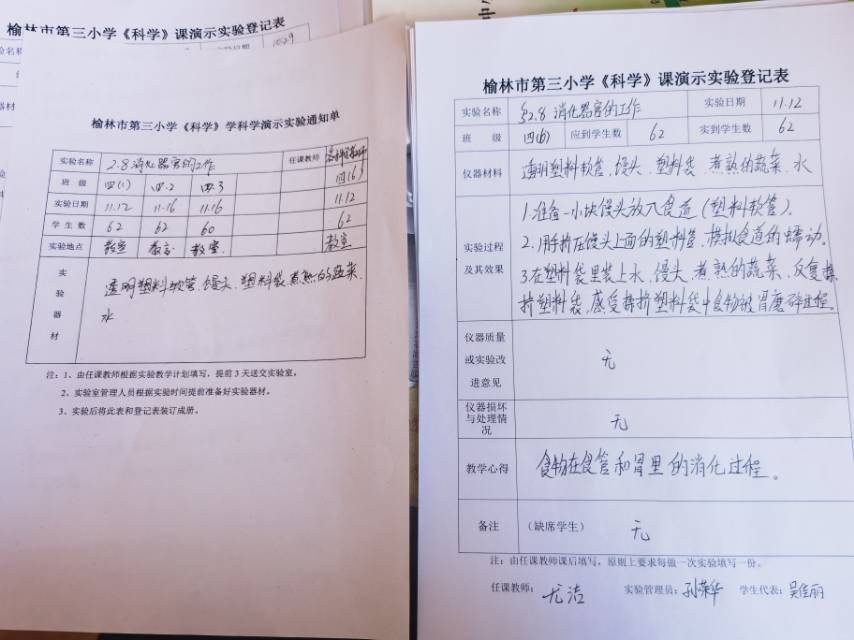 榆林市第三小学《科学》课演示实验登记表
10.29
榆林市第三小学《科学》学科学演示实验通知单
实验名称 2.8消化器官的工作 任课教师
班 级 四(1) 四.2 四.3 四(6)
实验日期 11.12 11.16 11.16 11.12
学生数 62 62 60 62
实验地点 教室 教室 教室 教室
实验器材 透明塑料软管、馒头、塑料袋、煮熟的蔬菜、
水
注：1、由任课教师根据实验教学计划填写，提前3天送交实验室。
2、实验室管理人员根据实验时间提前准备好实验器材。
3、实验后将此表和登记表装订成册。
榆林市第三小学《科学》课演示实验登记表
实验名称 §2.8 消化器官的工作 实验日期 11.12
班 级 四(6) 应到学生数 62 实到学生数 62
仪器材料 透明塑料软管、馒头、塑料袋、煮熟的蔬菜、水
实验过程及其效果 1.准备一小块馒头放入食道（塑料软管）.
2.用手挤压馒头上面的塑料管，模拟食道的蠕动.
3.在塑料袋里装上水、馒头、煮熟的蔬菜，反复揉
挤塑料袋，感受揉挤塑料袋中食物被胃磨碎过程。
仪器质量或实验改进意见 无
仪器损坏与处理情况 无
教学心得 食物在食管和胃里的消化过程。
备注 （缺席学生） 无
注：由任课教师课后填写，原则上要求每做一次实验填写一份。
任课教师：尤洁 实验管理员：孙荣华 学生代表：吴佳丽